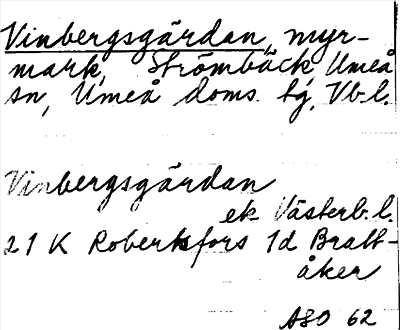 Vinbergsgärdan, myr-
mark, Strömbäck, Umeå
sn, Umeå doms. tg, Vb-l.
Vinbergsgärdan
ek Västerb. l.
21 K Robertsfors 1d Bratt-
åker
ASO 62